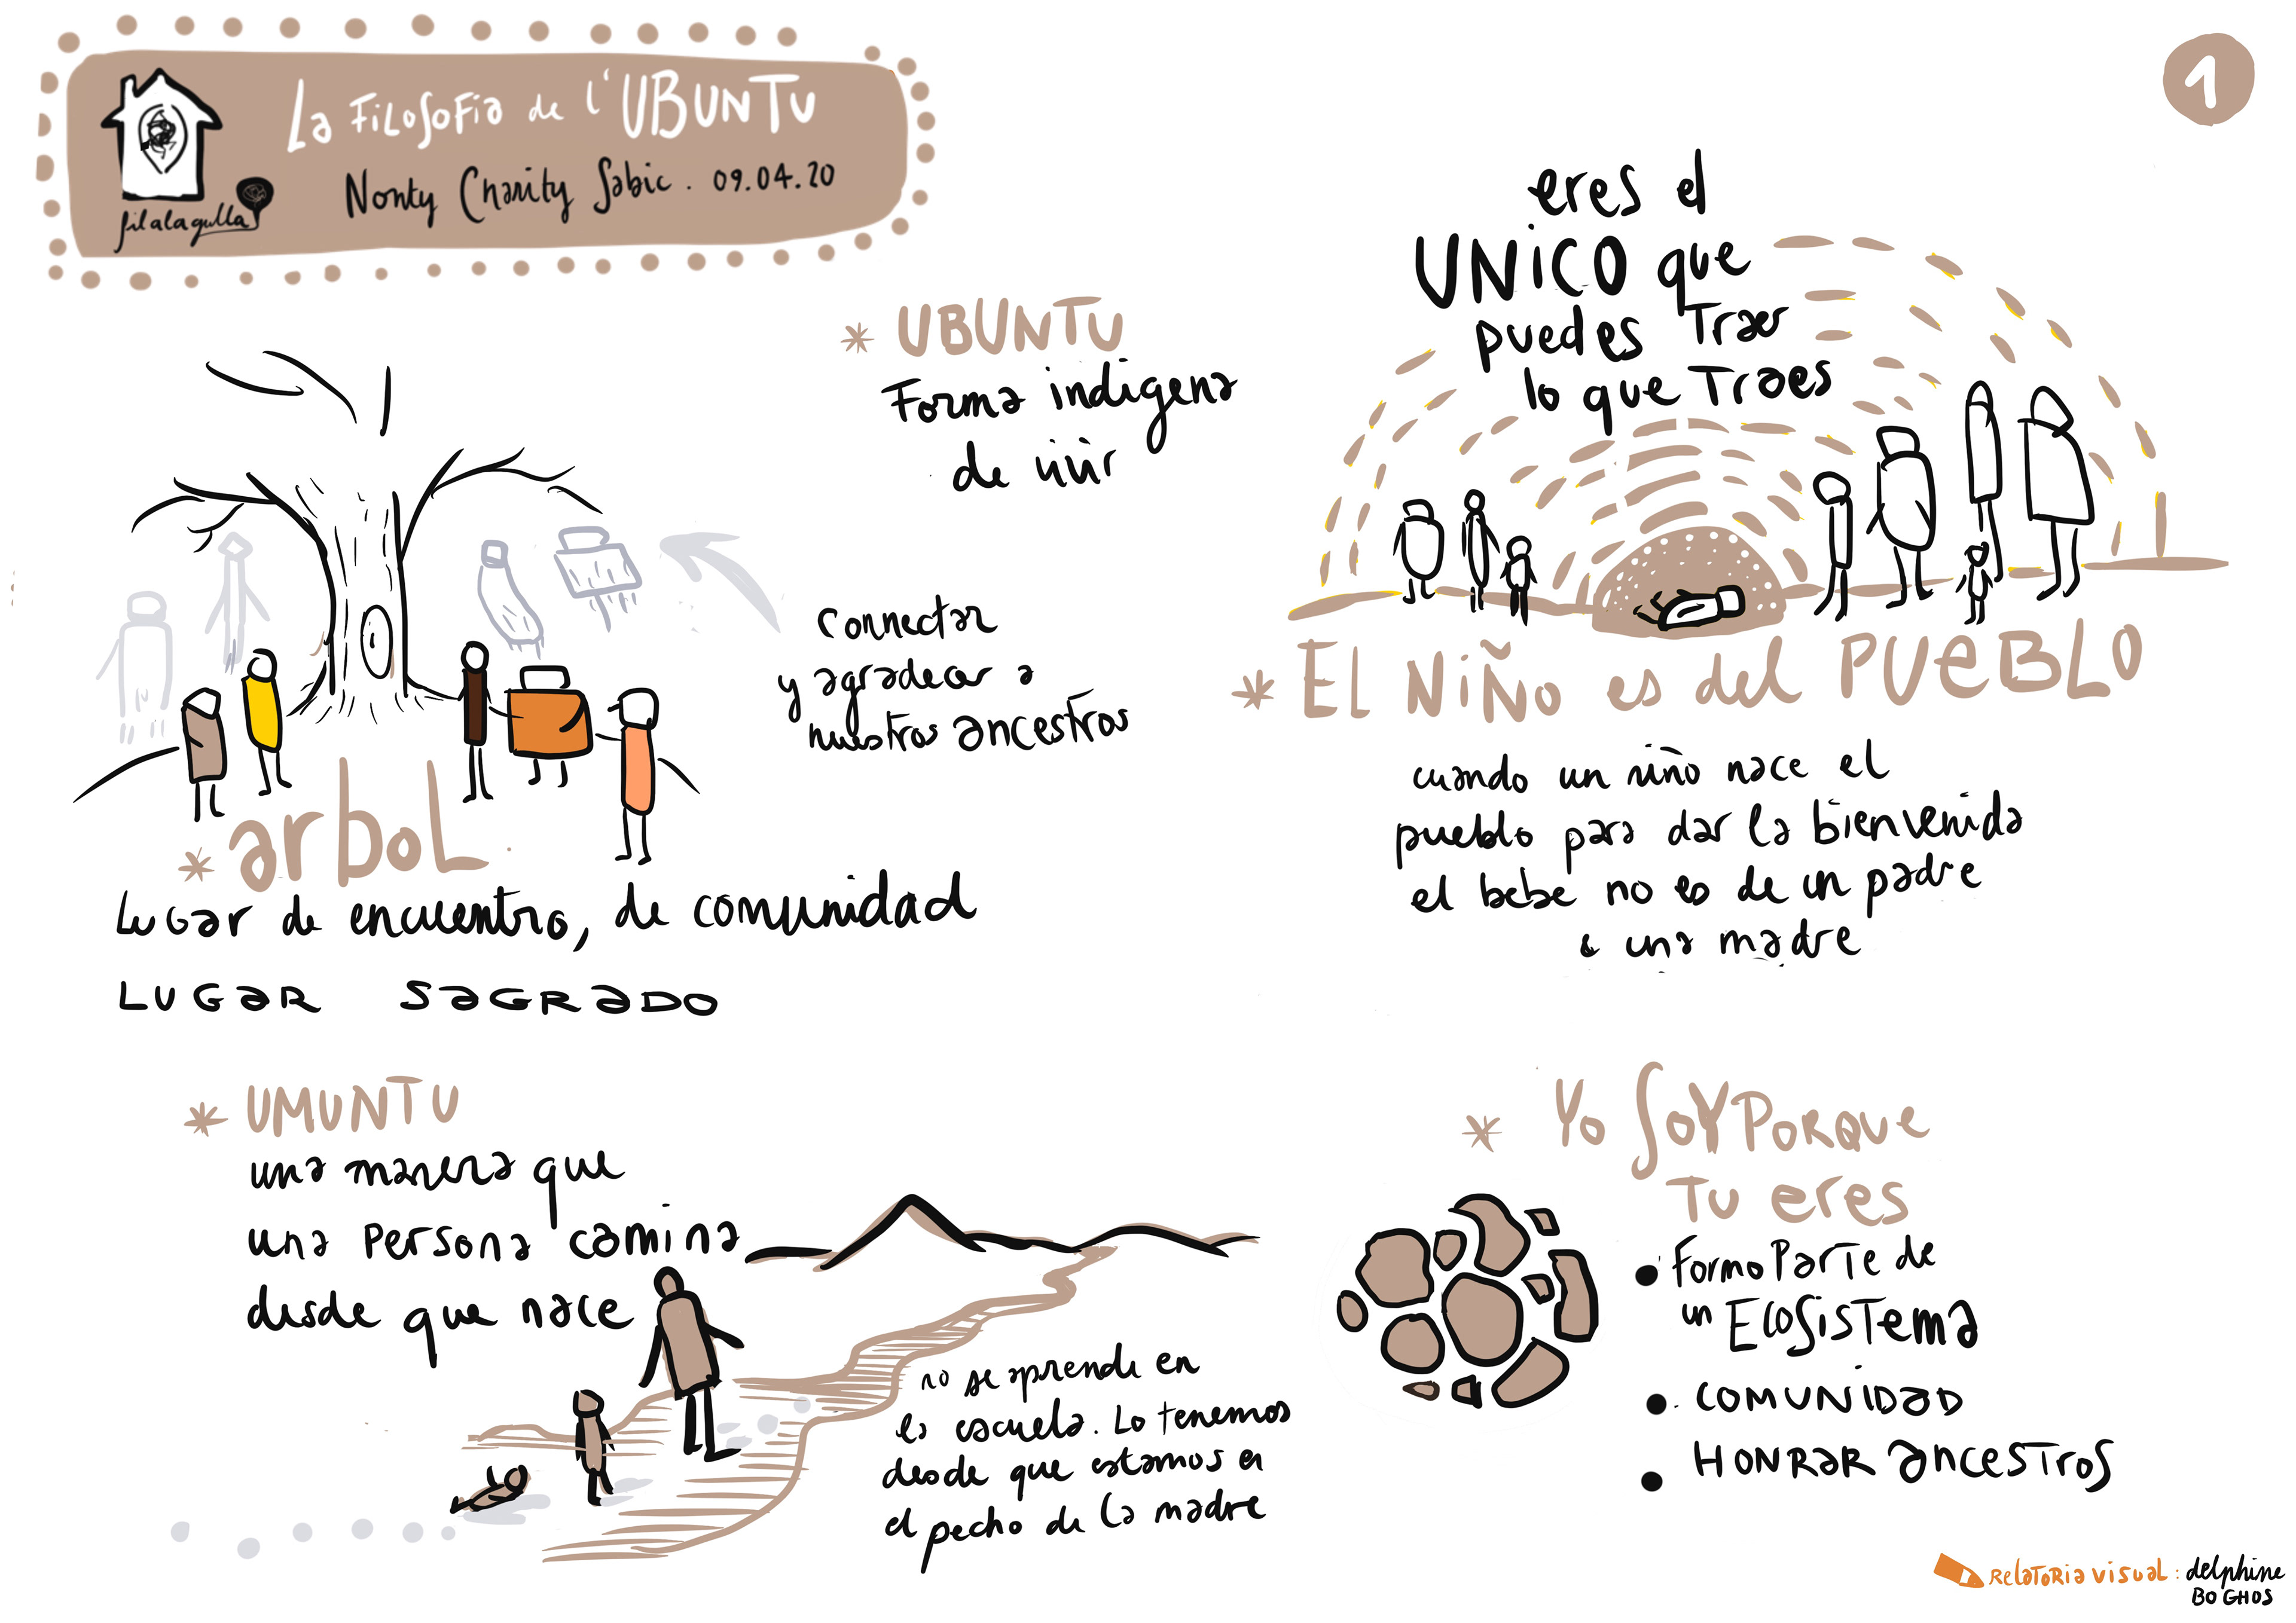 La Filosofia de l'UBUNTU
Nonty Charity Sabic . 09.04.20
filalagulla
1
* UBUNTU
Forma indigena
de vivir
eres el
UNiCO que
puedes Traer
lo que Traes
connectar
y agradecer a
nuestros ancestros
* arboL
Lugar de encuentro, de comunidad
LUGAR SaGRaDO
* EL NiÑo es del PUeBLO
cuando un niño nace el
pueblo para dar la bienvenida
el bebe no es de un padre
o una madre
* UMUNTU
una manera que
una Persona camina
desde que nace
no se aprende en
la escuela. Lo tenemos
desde que estamos en
el pecho de la madre
* Yo SoY PORQUe
TU eres
• Formo ParTe de
un EcoSisTema
• COMUNiDaD
• HONRaR ancesTroS
RelaToRia visual : delphine
BOGHOS